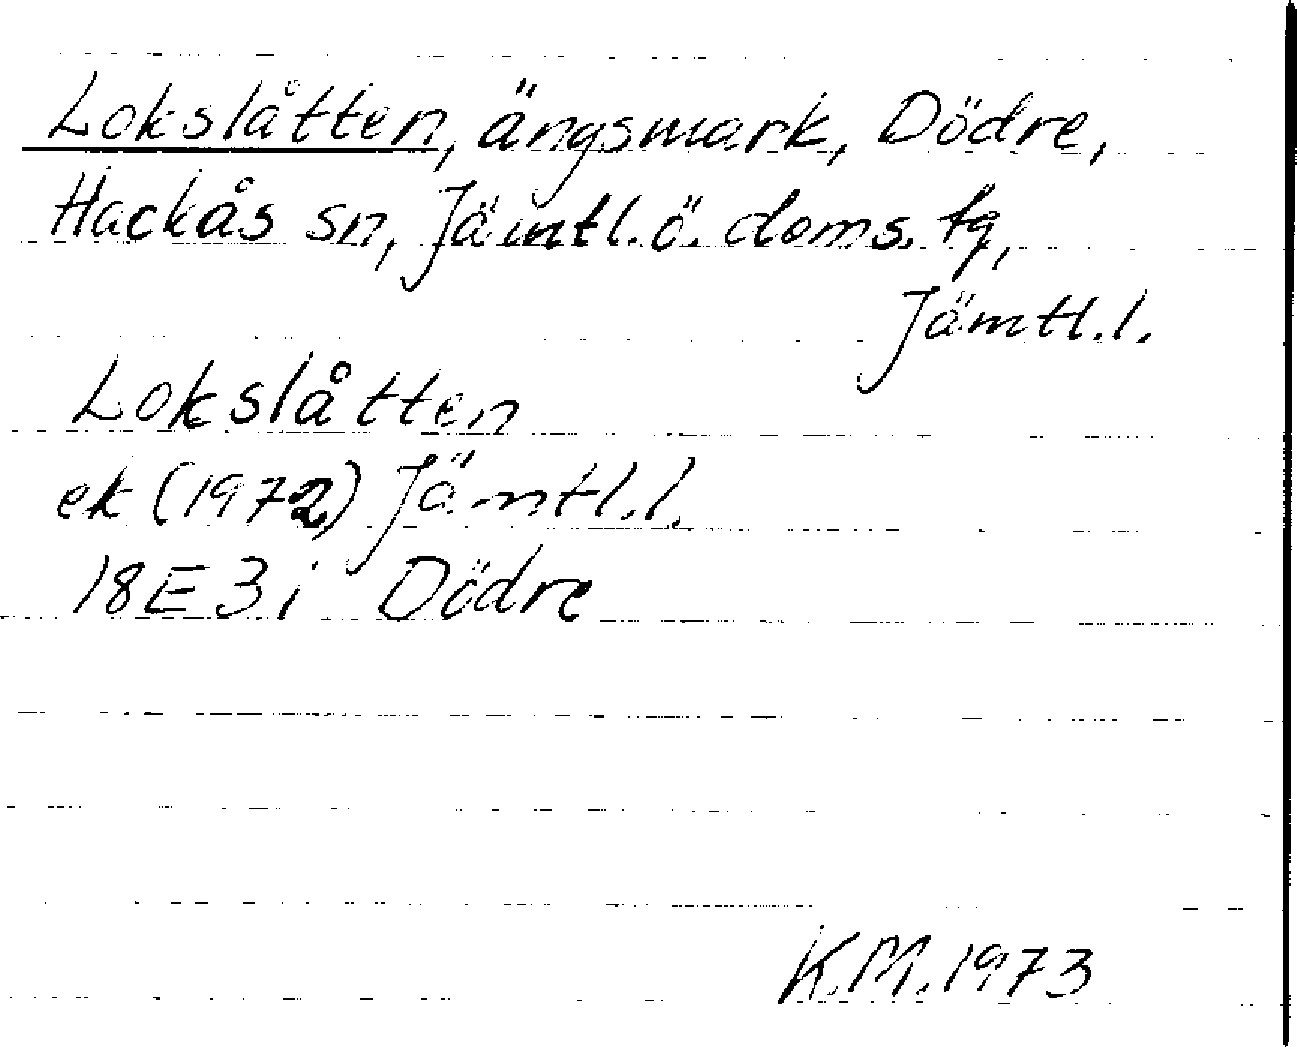 Lokslåtten, ängsmark, Dödre,
Hackås sn, Jämtl.ö. doms. tg,
Jämtl.l.
Lokslåtten
ek (1972) Jämtl.l.
18E3i Dödre
K.M.1973